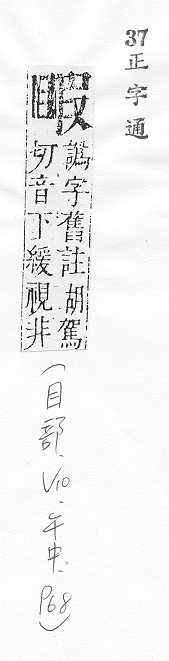 37正字通
睱
譌字舊註胡駕
切音下緩視非
(目部、V10、午中、P68)